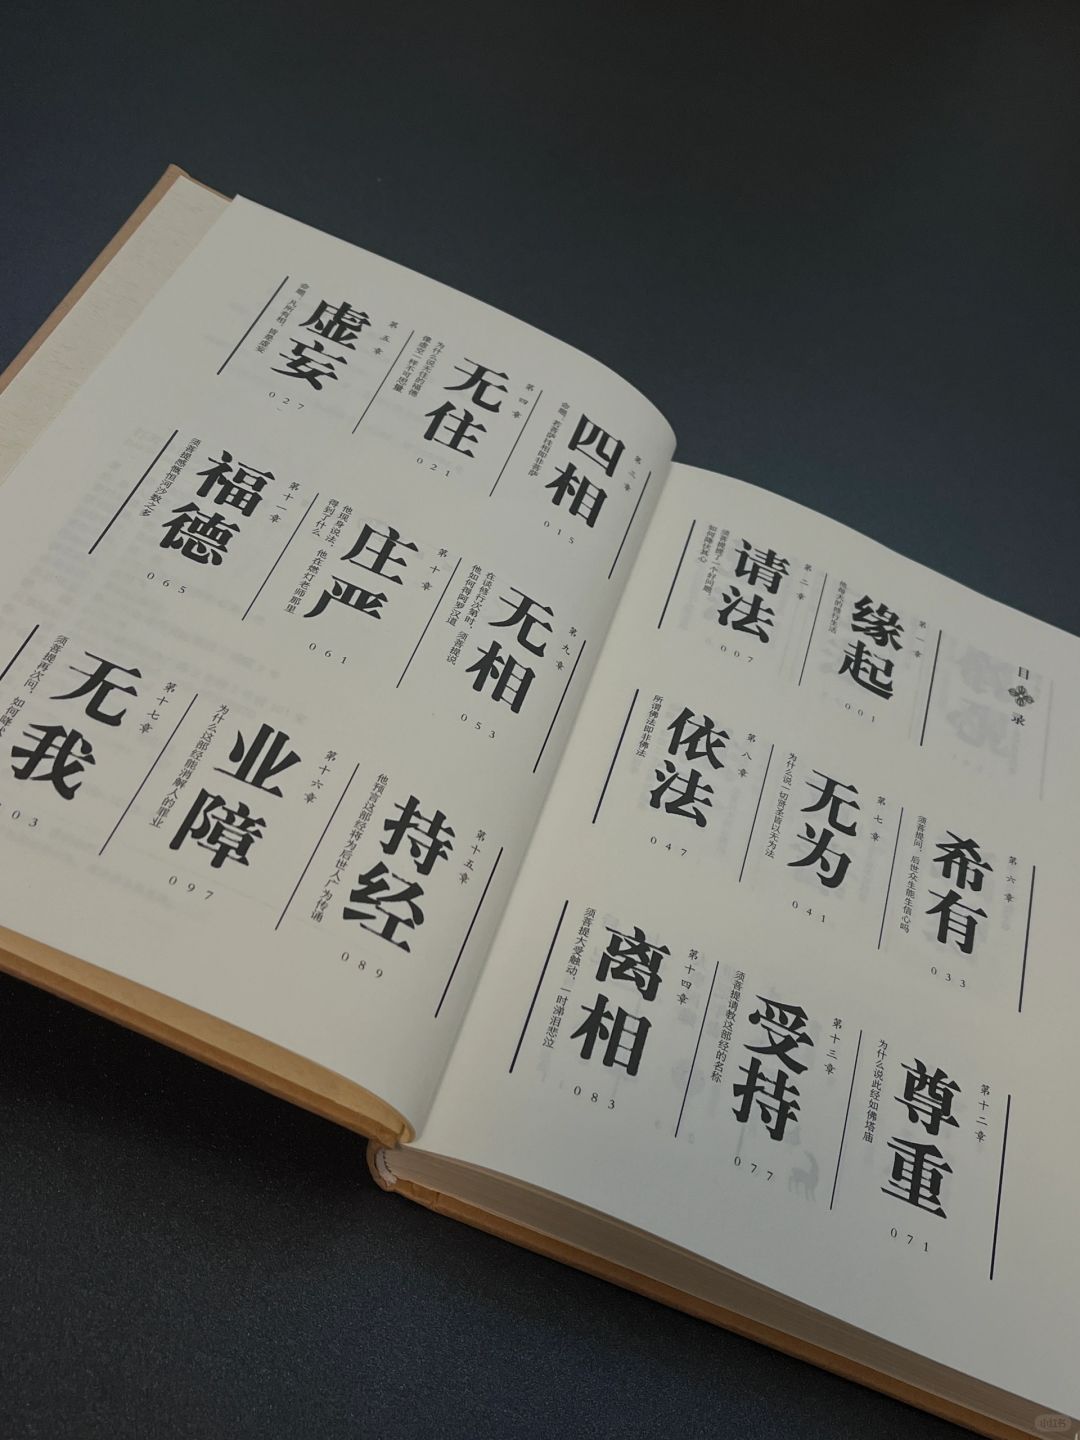 目录
第一章
缘起
他每天的修行生活
001
第二章
请法
须菩提提了一个好问题，
如何降伏其心
007
第三章
四相
命题：若菩萨住相即非菩萨
015
第四章
无住
为什么说无住的福德
像虚空一样不可思量
021
第五章
虚妄
命题：凡所有相，皆是虚妄
027
第六章
希有
须菩提问，后世众生能生信心吗
033
第七章
无为
为什么说一切贤圣皆以无为法
041
第八章
依法
所谓佛法即非佛法
047
第九章
无相
在谈修行次第时，须菩提说
他如何得阿罗汉道
053
第十章
庄严
他现身说法，他在燃灯老师那里
得到了什么
061
第十一章
福德
须菩提感慨恒河沙数之多
065
第十二章
尊重
为什么说此经如佛塔庙
071
第十三章
受持
须菩提请教这部经的名称
077
第十四章
离相
须菩提大受触动，一时涕泪悲泣
083
第十五章
持经
他预言这部经将为后世人广为传诵
089
第十六章
业障
为什么这部经能消解人的罪业
097
第十七章
无我
须菩提再次问，如何降伏
03
小红书